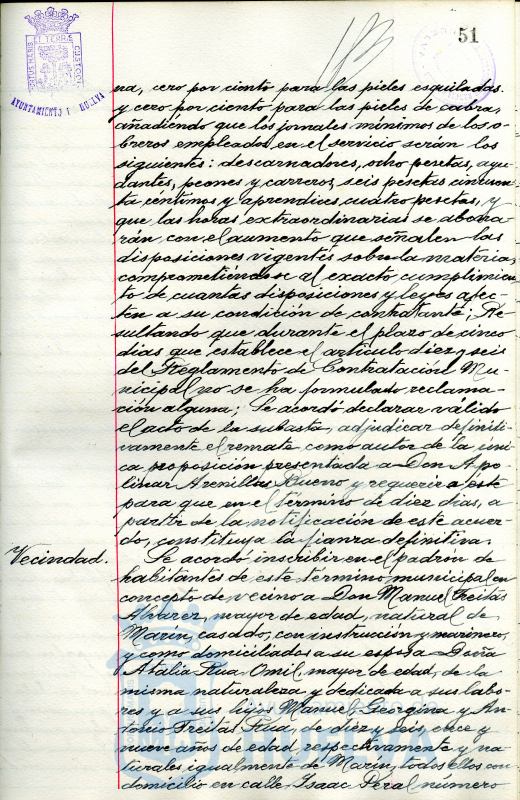 51
AYUNTAMIENTO DE HUELVA
na, cero por ciento para las pieles esquiladas
y cero por ciento para las pieles de cabra,
añadiendo que los jornales mínimos de los o-
breros empleados en el servicio serán los
siguientes: descarnadores, ocho pesetas, ayu-
dantes, peones y carreros, seis pesetas cincuen-
ta céntimos y aprendices, cuatro pesetas, y
que las horas extraordinarias se abona-
rán con el aumento que señalen las
disposiciones vigentes sobre la materia,
comprometiéndose al exacto cumplimien-
to de cuantas disposiciones y leyes afec-
ten a su condición de contratante; Re-
sultando que durante el plazo de cinco
dias que establece el artículo diez y seis
del Reglamento de Contratación Mu-
nicipal no se ha formulado reclama-
ción alguna; Se acordó declarar válido
el acto de la subasta, adjudicar definiti-
vamente el remate como autor de la úni-
ca proposición presentada a Don Apo-
linar Arenillas Bueno y requerir a éste
para que en el término de diez dias, a
partir de la notificación de este acuer-
do, constituya la fianza definitiva.
Vecindad.
Se acordó inscribir en el padrón de
habitantes de este término municipal en
concepto de vecino a Don Manuel Freitas
Alvarez, mayor de edad, natural de
Marín, casado, con instrucción y marinero,
y como domiciliados a su esposa Doña
Atalia Rua Omil, mayor de edad, de la
misma naturaleza y dedicada a sus labo-
res y a sus hijos Manuel, Georgina y An-
tonio Freitas Rua, de diez y seis, once y
nueve años de edad, respectivamente y na-
turales igualmente de Marín, todos ellos con
domicilio en calle Isaac Peral número